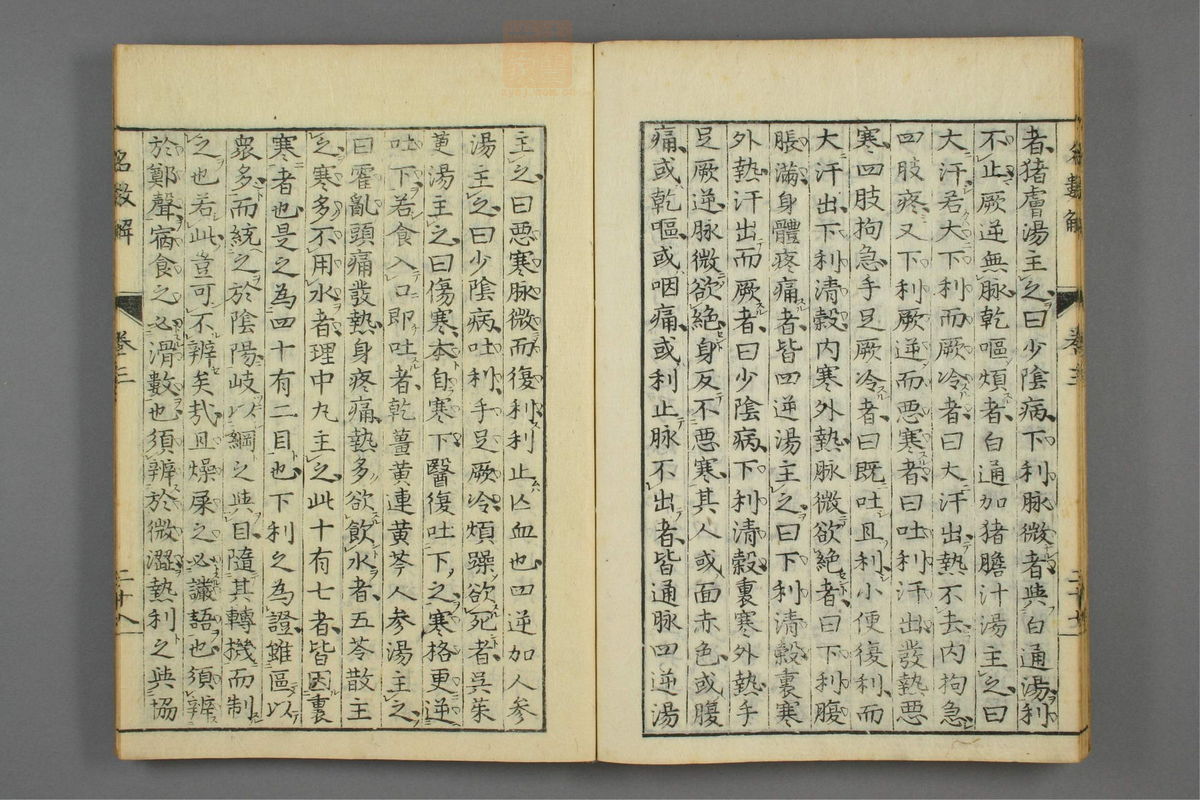 者猪膚湯主之曰少陰病下利脉微者與白通湯利
不止厥逆無脉乾嘔煩者白通加猪膽汁湯主之曰
大汗若大下利而厥冷者曰大汗出熱不去内拘急
四肢疼又下利厥逆而惡寒者曰吐利汗出發熱惡
寒四肢拘急手足厥冷者曰既吐且利小便復利而
大汗出下利清穀内寒外熱脉微欲絶者曰下利腹
脹滿身體疼痛者皆四逆湯主之曰下利清穀裏寒
外熱汗出而厥者曰少陰病下利清穀裏寒外熱手
足厥逆脉微欲絶身反不惡寒其人或面赤色或腹
痛或乾嘔或咽痛或利止脉不出者皆通脉四逆湯
主之曰惡寒脉微而復利利止亡血也四逆加人參
湯主之曰少陰病吐利手足厥冷煩躁欲死者吳茱
萸湯主之曰傷寒本自寒下醫復吐下之寒格更逆
吐下若食入口即吐者乾薑黄連黄芩人参湯主之
曰霍亂頭痛發熱身疼痛熱多欲飲水者五苓散主
之寒多不用水者理中丸主之此十有七者皆因裏
寒者也是之為四十有二目也下利之為證雖區以
衆多而統之於陰陽岐以綱之與目隨其轉機而制
之也若此豈可不辨矣哉且燥屎之必讝語也須辨
於鄭聲宿食之必滑數也須辨於微澀熱利之與協
名數解
卷三
二十八